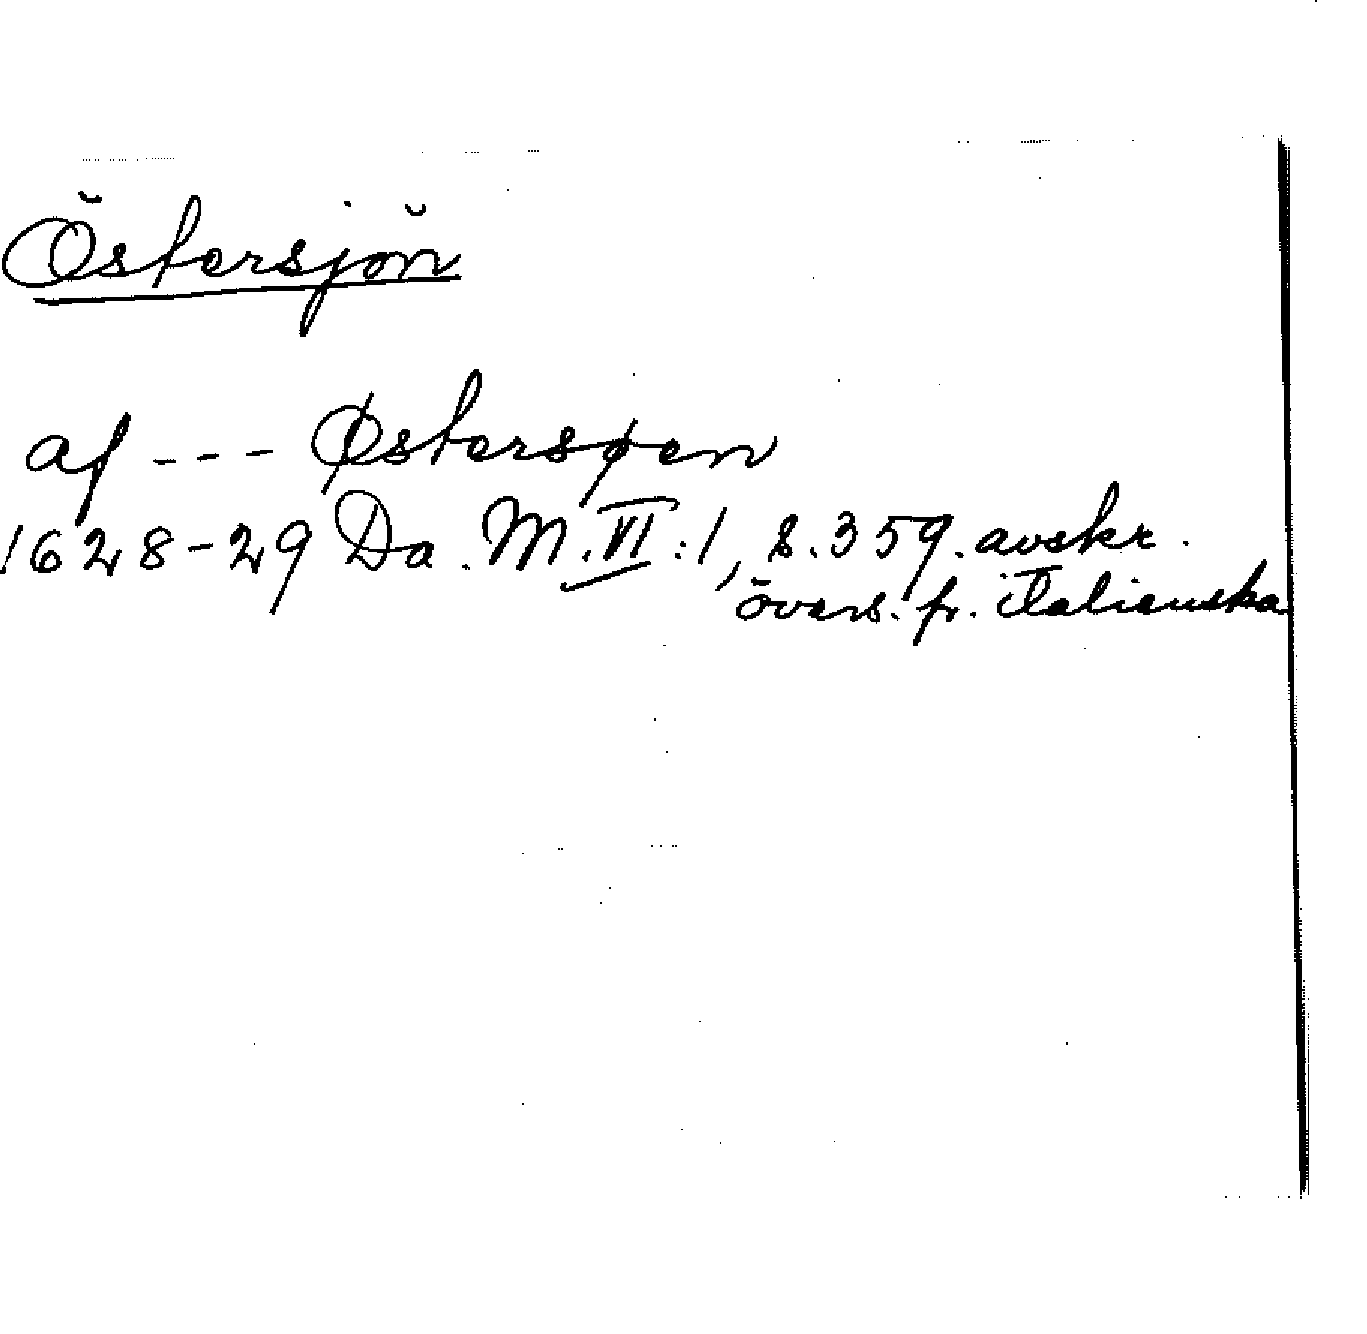 Östersjön
af --- Østersøen
1628-29 Da. M. VI:1, s. 359. avskr.
övers. fr. italienska